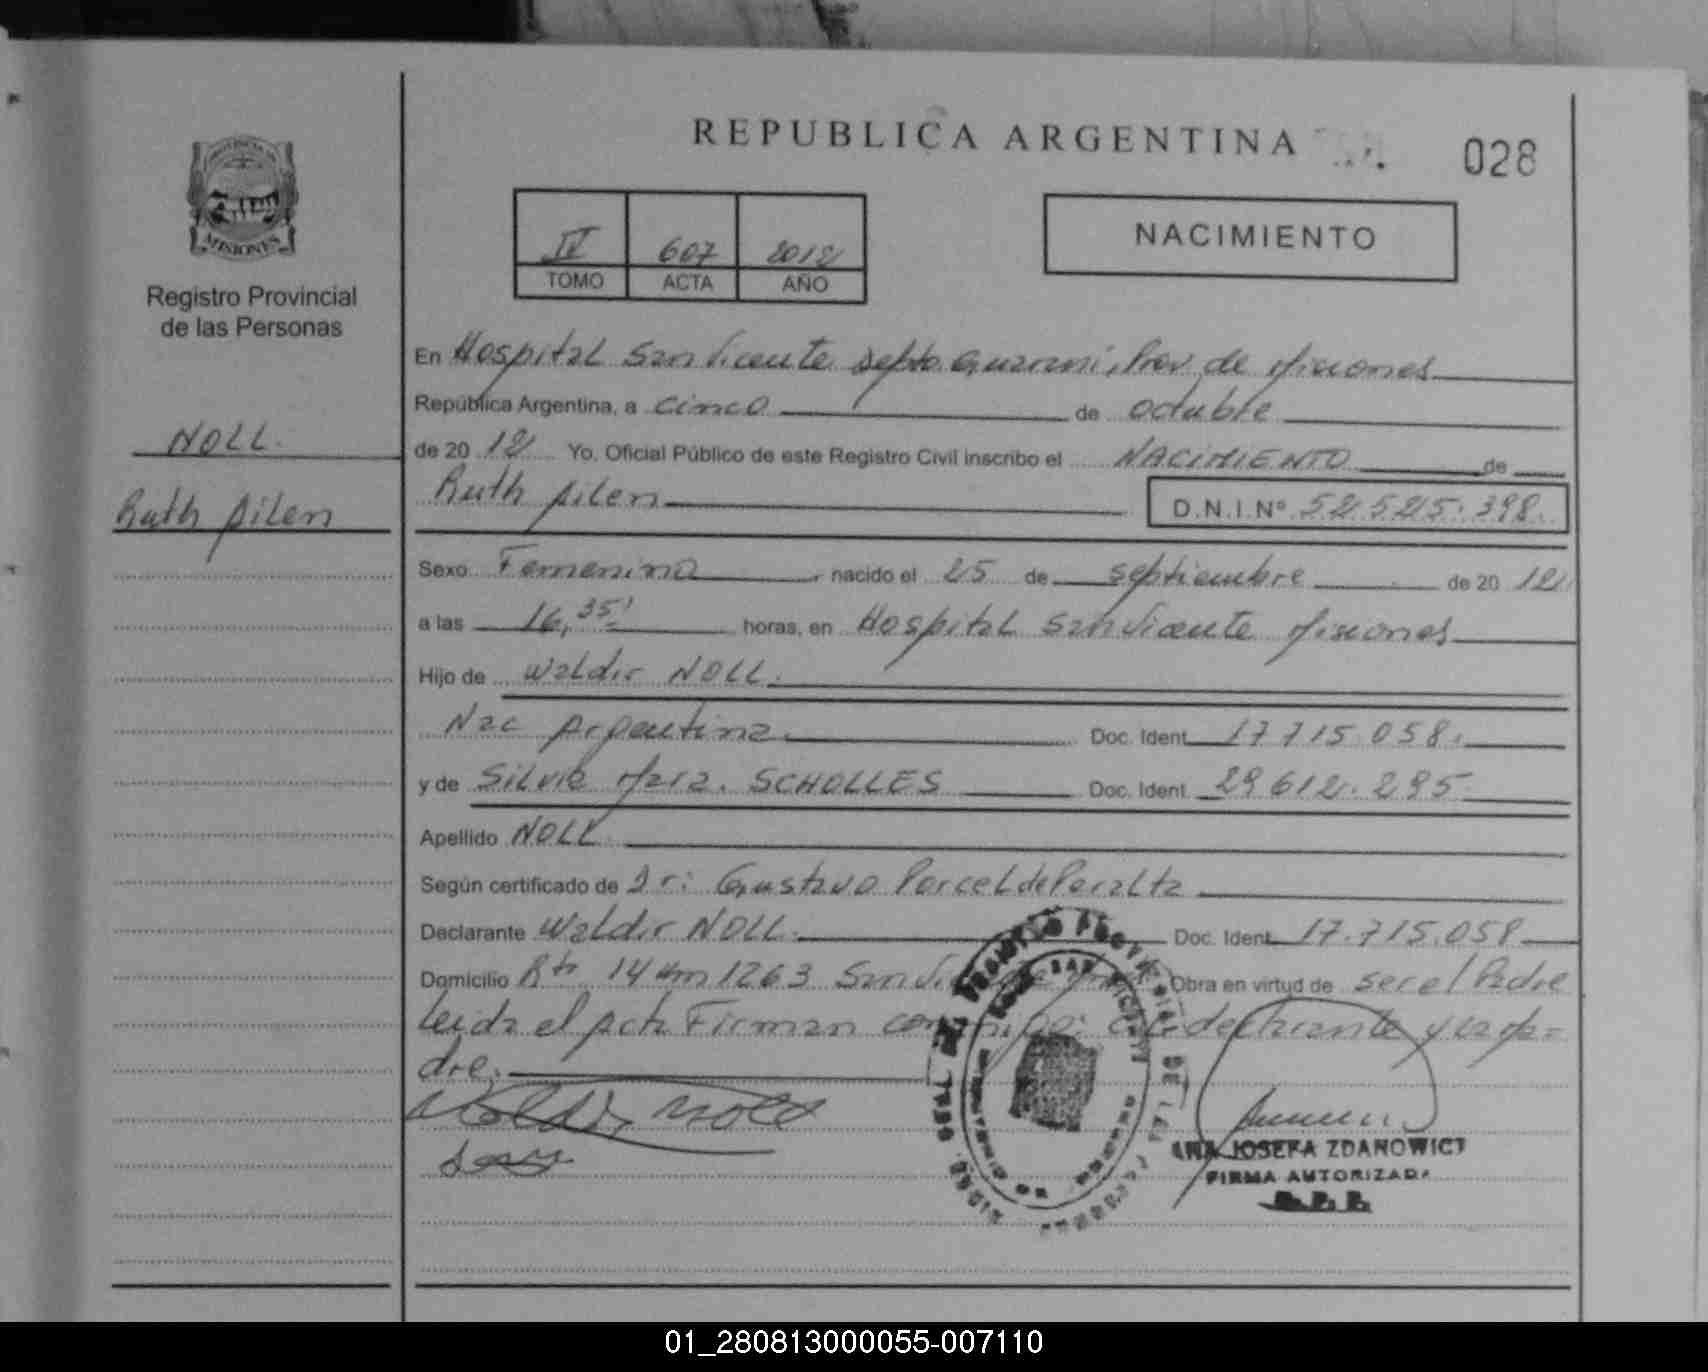 REPUBLICA ARGENTINA
028
PROVINCIA DE
MISIONES
Registro Provincial
de las Personas
NOLL.
Ruth Ailen
IV 607 2012
TOMO ACTA AÑO
NACIMIENTO
En Hospital San Vicente Depto Guarani, Prov de Misiones
República Argentina, a cinco de octubre
de 20 12 Yo, Oficial Público de este Registro Civil inscribo el NACIMIENTO de
Ruth Ailen D.N.I.Nº 52.525.398.
Sexo Femenino nacido el 25 de septiembre de 20 12
a las 16,35' horas, en Hospital San Vicente Misiones
Hijo de Waldir NOLL.
Nac Argentina. Doc. Ident. 17 715.058.
y de Silvia Mara. SCHOLLES Doc. Ident. 29 612.295
Apellido NOLL
Según certificado de Dr: Gustavo Porcel de Peralta
Declarante Waldir NOLL. Doc. Ident. 17.715.058
Domicilio Rta 14 km 1263 San Obra en virtud de ser el Padre
Leida el Acta Firman declarante y la Ma-
dre.
Waldir Noll
ANA JOSEFA ZDANOWICZ
FIRMA AUTORIZADA
R. P. P.
01_280813000055-007110